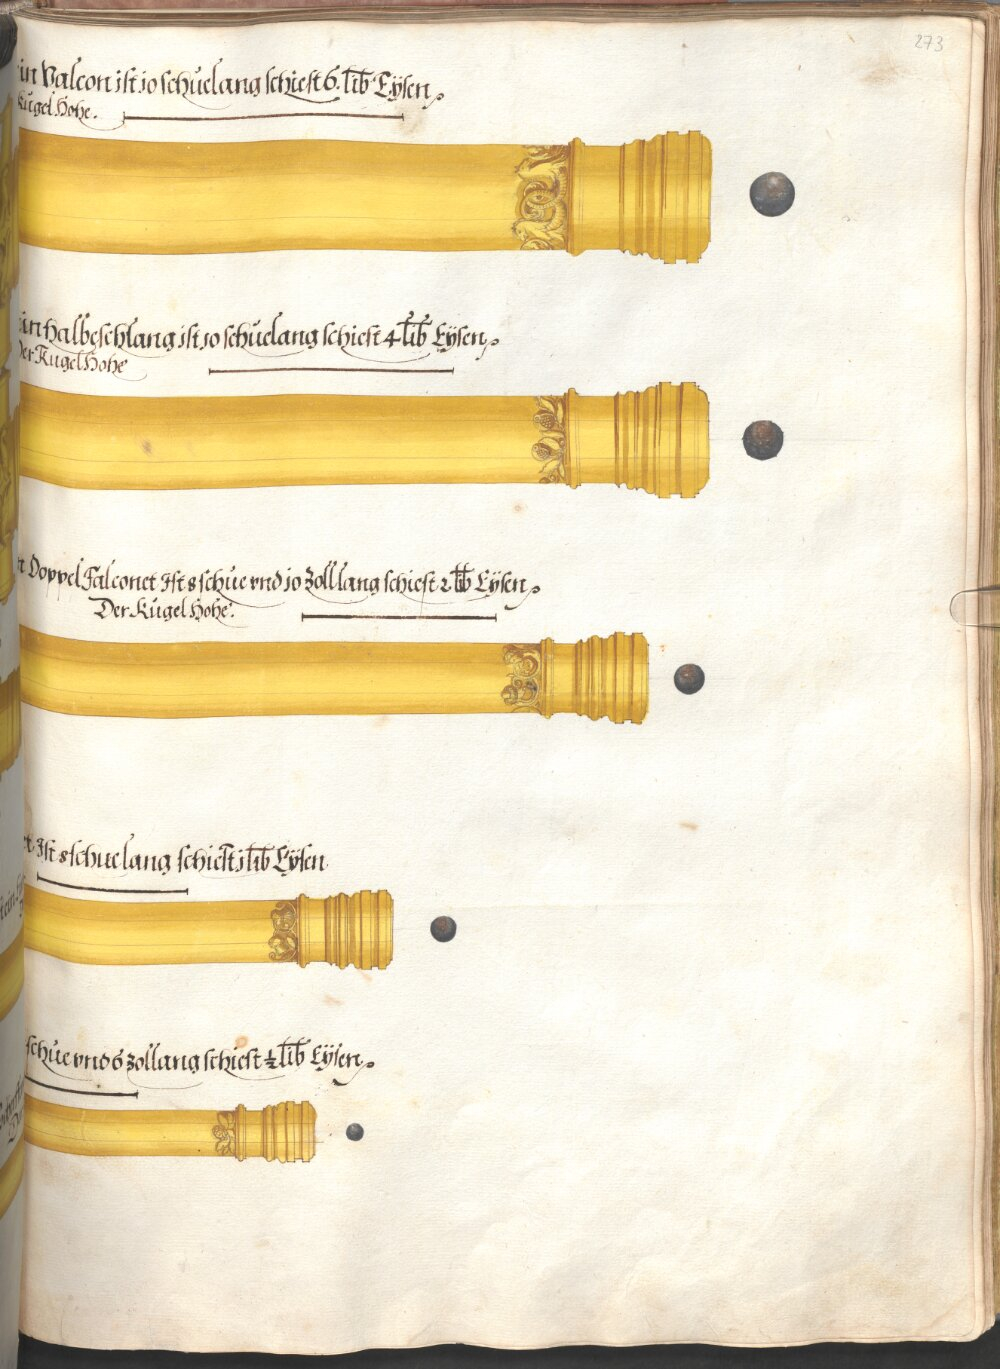 273
in Valcon ist 10 schuelang schiest 6. lib Eÿsen
Kugel Hohe.
in Halbeschlang ist 10 schuelang schiest 4 lib Eÿsen
Der Kugel Hohe
Doppel Falconet Ist 8 schue vnd 10 Zoll lang schiest 2 lib Eÿsen
Der Kugel Hohe.
et Ist 8 schuelang schiest 1 lib Eÿsen
schue vnd 6 zollang schiest ½ lib Eÿsen